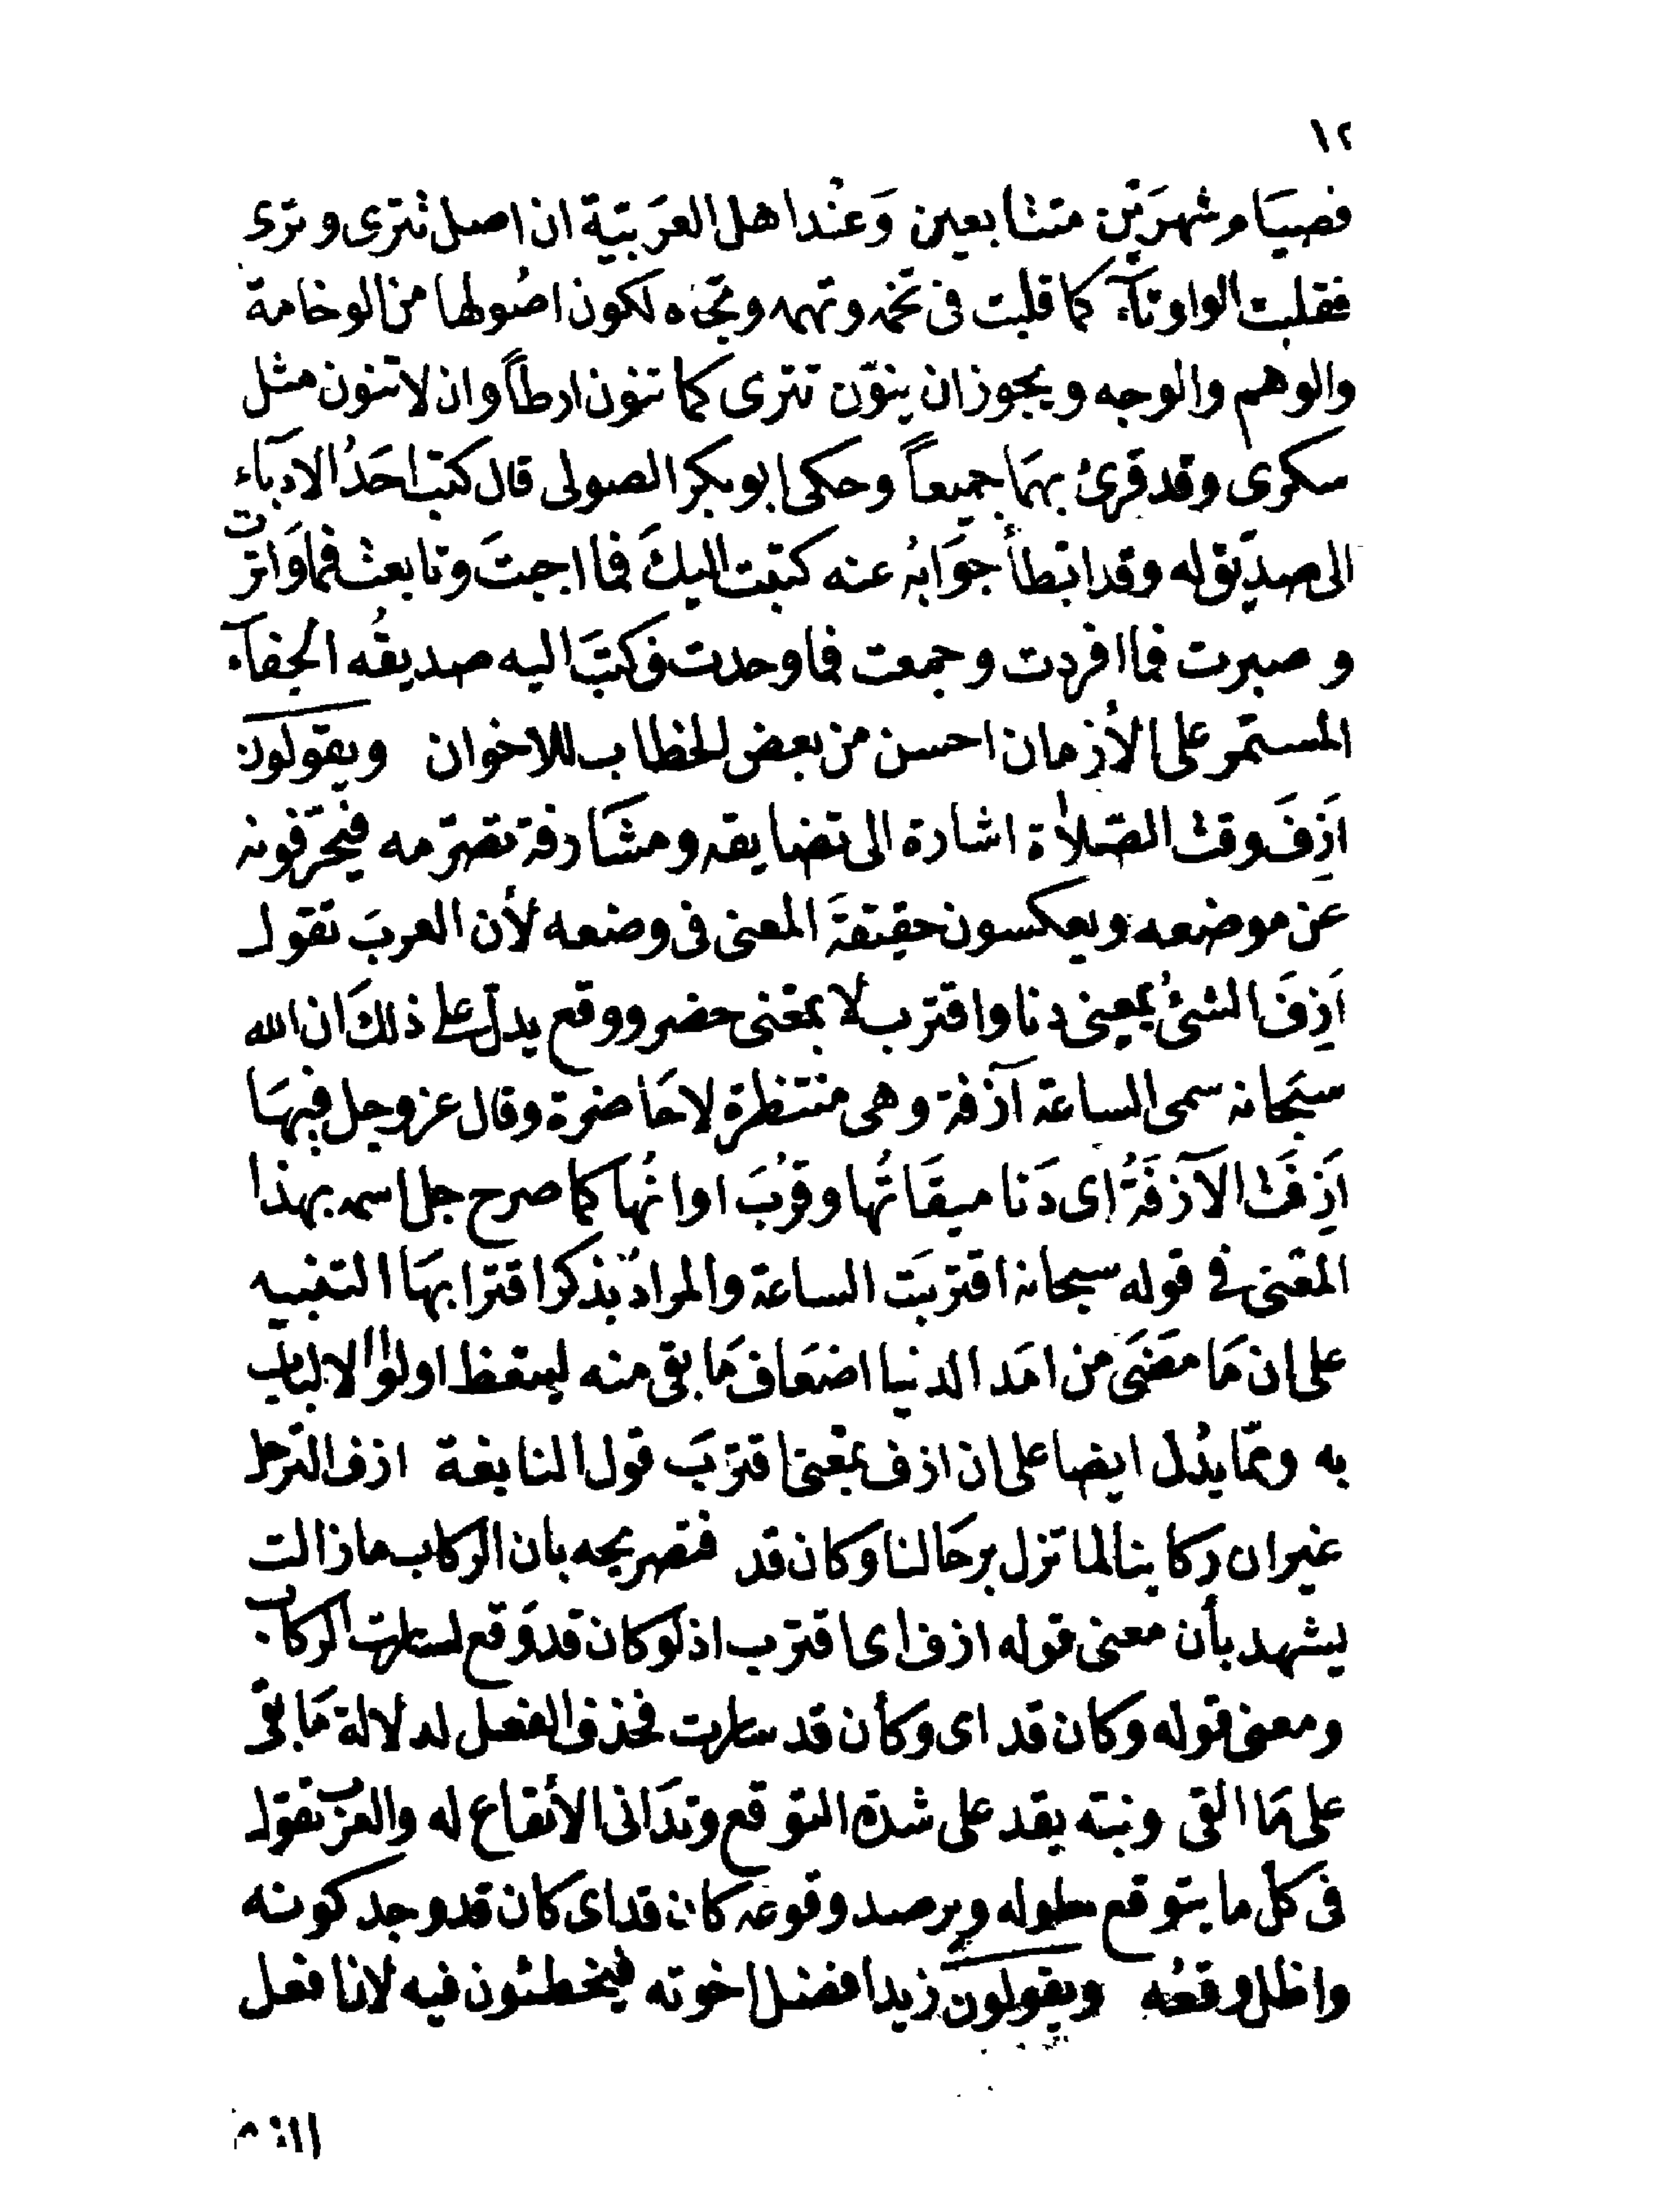 ١٢
فصيَام شهرَيْن متتابعين وَعنْد اهل العَربيّة ان اصل تترى وترى
فقلبت الواو تآء كما قلبت فى تخمه وتهمه وتجاه لكون اصُولها من الوخامة
والوهم والوجه ويجوز ان ينوّن تترى كما تنون ارطاً وان لا تنون مثل
سكرى وقد قرئ بهمَا جميعاً وحكى ابو بكر الصولى قال كتب احَدُ الادبآء
الى صديق له وقد ابَطأ جَوَابُه عنه كتبت اليكَ فما اجبتَ وتابعت فما وَاترت
وصبرت فما افردت وجمعت فما وحدت فكتبَ اليه صديقُه الجفآء
المستمّر على الأزمان احسن من بعض الخطاب للاخوان ويقولون
ازَفَ وقت الصّلاة اشارة الى تضايقه ومشَارفة تصّرمه فيحَّرفونه
عَن موضعه ويعكسون حقيقةَ المعنى فى وضعه لأن العربَ تقول
اَزِفَ الشئُ بمعنى دنا واقترب لا بمعَنى حضر ووقع يدلّ على ذلكَ ان الله
سبَحانه سمى الساعة آزفة وهى منتظرة لا حَاضرة وقال عز وجل فيهَا
اَزِفَت الآزفَةُ اى دَنا ميقَاتُها وقرُبَ اوانُها كما صرح جل اسمه بهذا
المعَنى فى قوله سبحانه اقتربَت الساعة والمرادُ بذكر اقترابهَا التنبيه
على ان مَا مضَى من امَد الدنيا اضعَاف مَا بقى منه ليتعظ اولوا الالباب
به وممّا يدُل ايضا على ان ازف بمعَنى اقترَبَ قول النابغة ازف الترحل
غير ان ركابنا لما تزل برحَالنا وكان قد فتصريحه بان الركاب ما زالت
يشهد بأن معنى قوله ازف اى اقترب اذ لو كان قد وَقع لسارت الركاب
ومعنى قوله وكان قد اى وكأن قد سارت فحذف الفعل لدلالة مَا بقى
على مَا القى ونبته بقد على شدة التوقع وتدَانى الأيقاع له والعرَب تقول
فى كل ما يتوقع حلوله ويرصد وقوعه كان قد اى كان قد وجد كونه
واظل وقعُه ويقولون زيد افضل اخوته فيخطئون فيه لان افعل